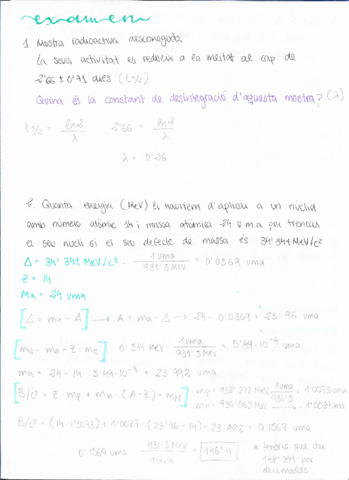 examen
1. Mostra radioactiva desconeguda.
La seva activitat es redueix a la meitat al cap de
2'66 ± 0'71 dies (t1/2)
Quina és la constant de desintegració d'aquesta mostra? (λ)
t1/2 = ln2/λ 2'66 = ln2/λ
λ = 0'26
2. Quanta energia (MeV) li hauríem d'aplicar a un núclid
amb número atòmic 14 i massa atòmica 24 u.m.a per trencar
el seu nucli si el seu defecte de massa és 34'341 MeV/c²
Δ = 34'341 MeV/c² · 1uma/931'5 MeV = 0'0369 uma
Z = 14
Mn = 24 uma
[Δ = ma - A] → A = ma - Δ → 24 - 0'0369 = 23'96 uma
[mN = ma - Z · me] 0'511 MeV · 1uma/931'5 MeV = 5'49·10⁻⁴ uma
mN = 24 - 14 · 5'49·10⁻⁴ = 23'992 uma
[B/c² = Z · mp + mn · (A - Z) - mN] mp = 938'272 MeV · 1uma/931'5 = 1'0073 uma
mn = 939'565 MeV → 1'0087 uma
B/c² = (14 · 1'0073) + 1'0087 · (23'96 - 14) - 23'992 = 0'1569 uma
0'1569 uma · 931'5 MeV/1uma =